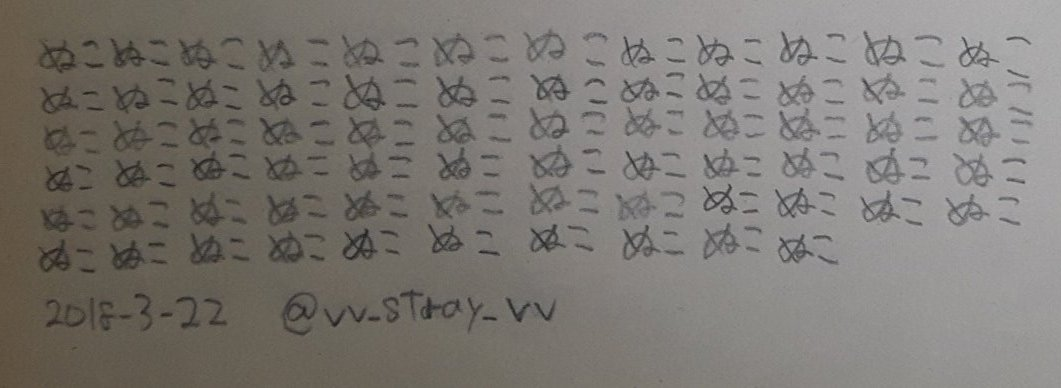 ぬこぬこぬこぬこぬこぬこぬこぬこぬこぬこぬこぬこ
ぬこぬこぬこぬこぬこぬこぬこぬこぬこぬこぬこぬこ
ぬこぬこぬこぬこぬこぬこぬこぬこぬこぬこぬこぬこ
ぬこぬこぬこぬこぬこぬこぬこぬこぬこぬこぬこぬこ
ぬこぬこぬこぬこぬこぬこぬこぬこぬこぬこぬこぬこ
ぬこぬこぬこぬこぬこぬこぬこぬこぬこぬこ
2018-3-22 @vv_stray_vv